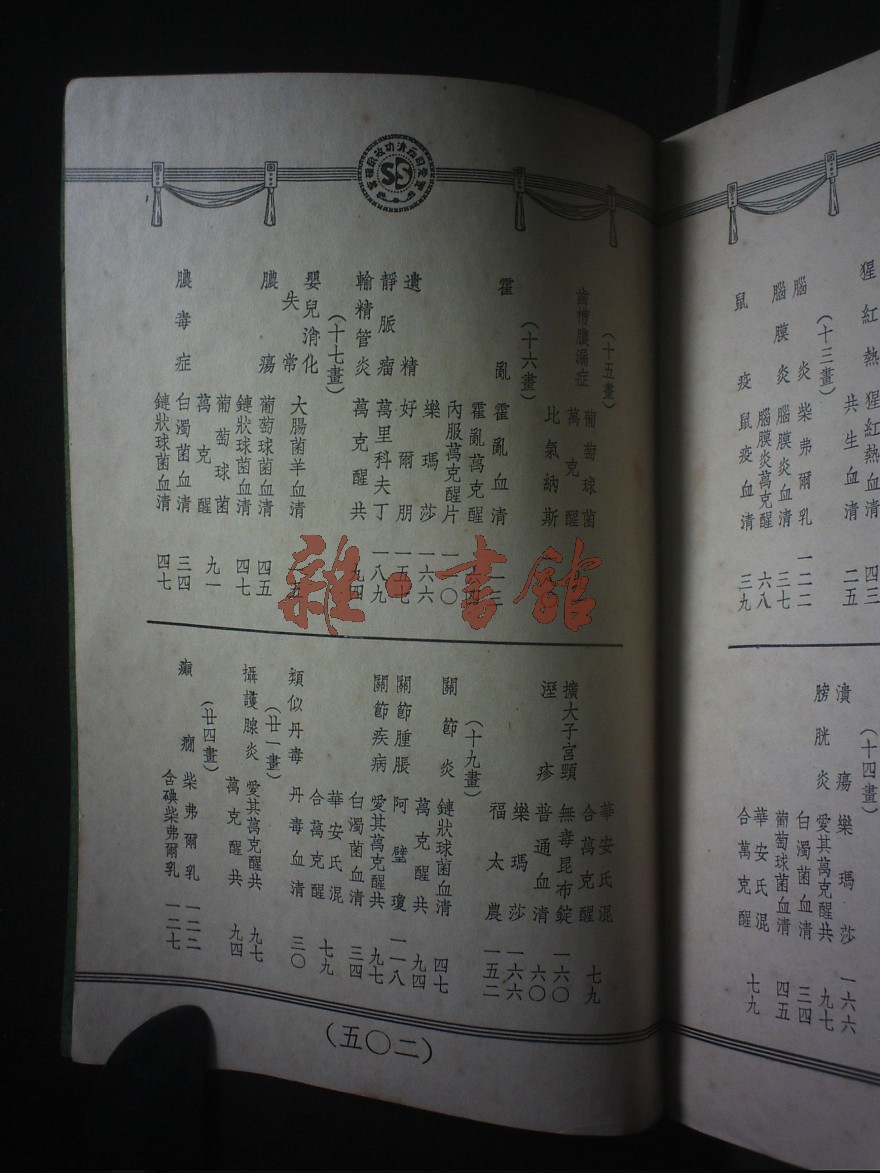 猩紅熱 猩紅熱血清 四三
共生血清 二五
(十三畫)
腦炎 柴弗爾乳 一二二
腦膜炎 腦膜炎血清 三七
腦膜炎萬克醒 六八
鼠疫 鼠疫血清 三九
(十四畫)
潰瘍 樂瑪莎 一六六
膀胱炎 愛其萬克醒共 九七
白濁菌血清 三四
葡萄球菌血清 四五
華安氏混
合萬克醒 七九
(十五畫)
齒槽膿漏症 葡萄球菌
萬克醒
比氣納斯
(十六畫)
霍亂 霍亂血清
霍亂萬克醒
內服萬克醒片 一一〇
樂瑪莎 一六六
遺精 好爾朋 一五七
靜脈瘤 萬里科夫丁 一八九
輸精管炎 萬克醒共 九四
(十七畫)
嬰兒消化
失常 大腸菌羊血清
膿瘍 葡萄球菌血清 四五
鏈狀球菌血清 四七
葡萄球菌
萬克醒 九一
膿毒症 白濁菌血清 三四
鏈狀球菌血清 四七
華安氏混
合萬克醒 七九
擴大子宮頸 無毒昆布錠 一六〇
溼疹 普通血清 六〇
樂瑪莎 一六六
福太農 一五二
(十九畫)
關節炎 鏈狀球菌血清 四七
萬克醒共 九四
關節腫脹 阿璧瓊 一一八
關節疾病 愛其萬克醒共 九七
白濁菌血清 三四
華安氏混
合萬克醒 七九
類似丹毒 丹毒血清 三〇
(廿一畫)
攝護腺炎 愛其萬克醒共 九七
萬克醒共 九四
(廿四畫)
癲癇 柴弗爾乳 一二二
含碘柴弗爾乳 一二七
(五〇二)
SS
雜·書館